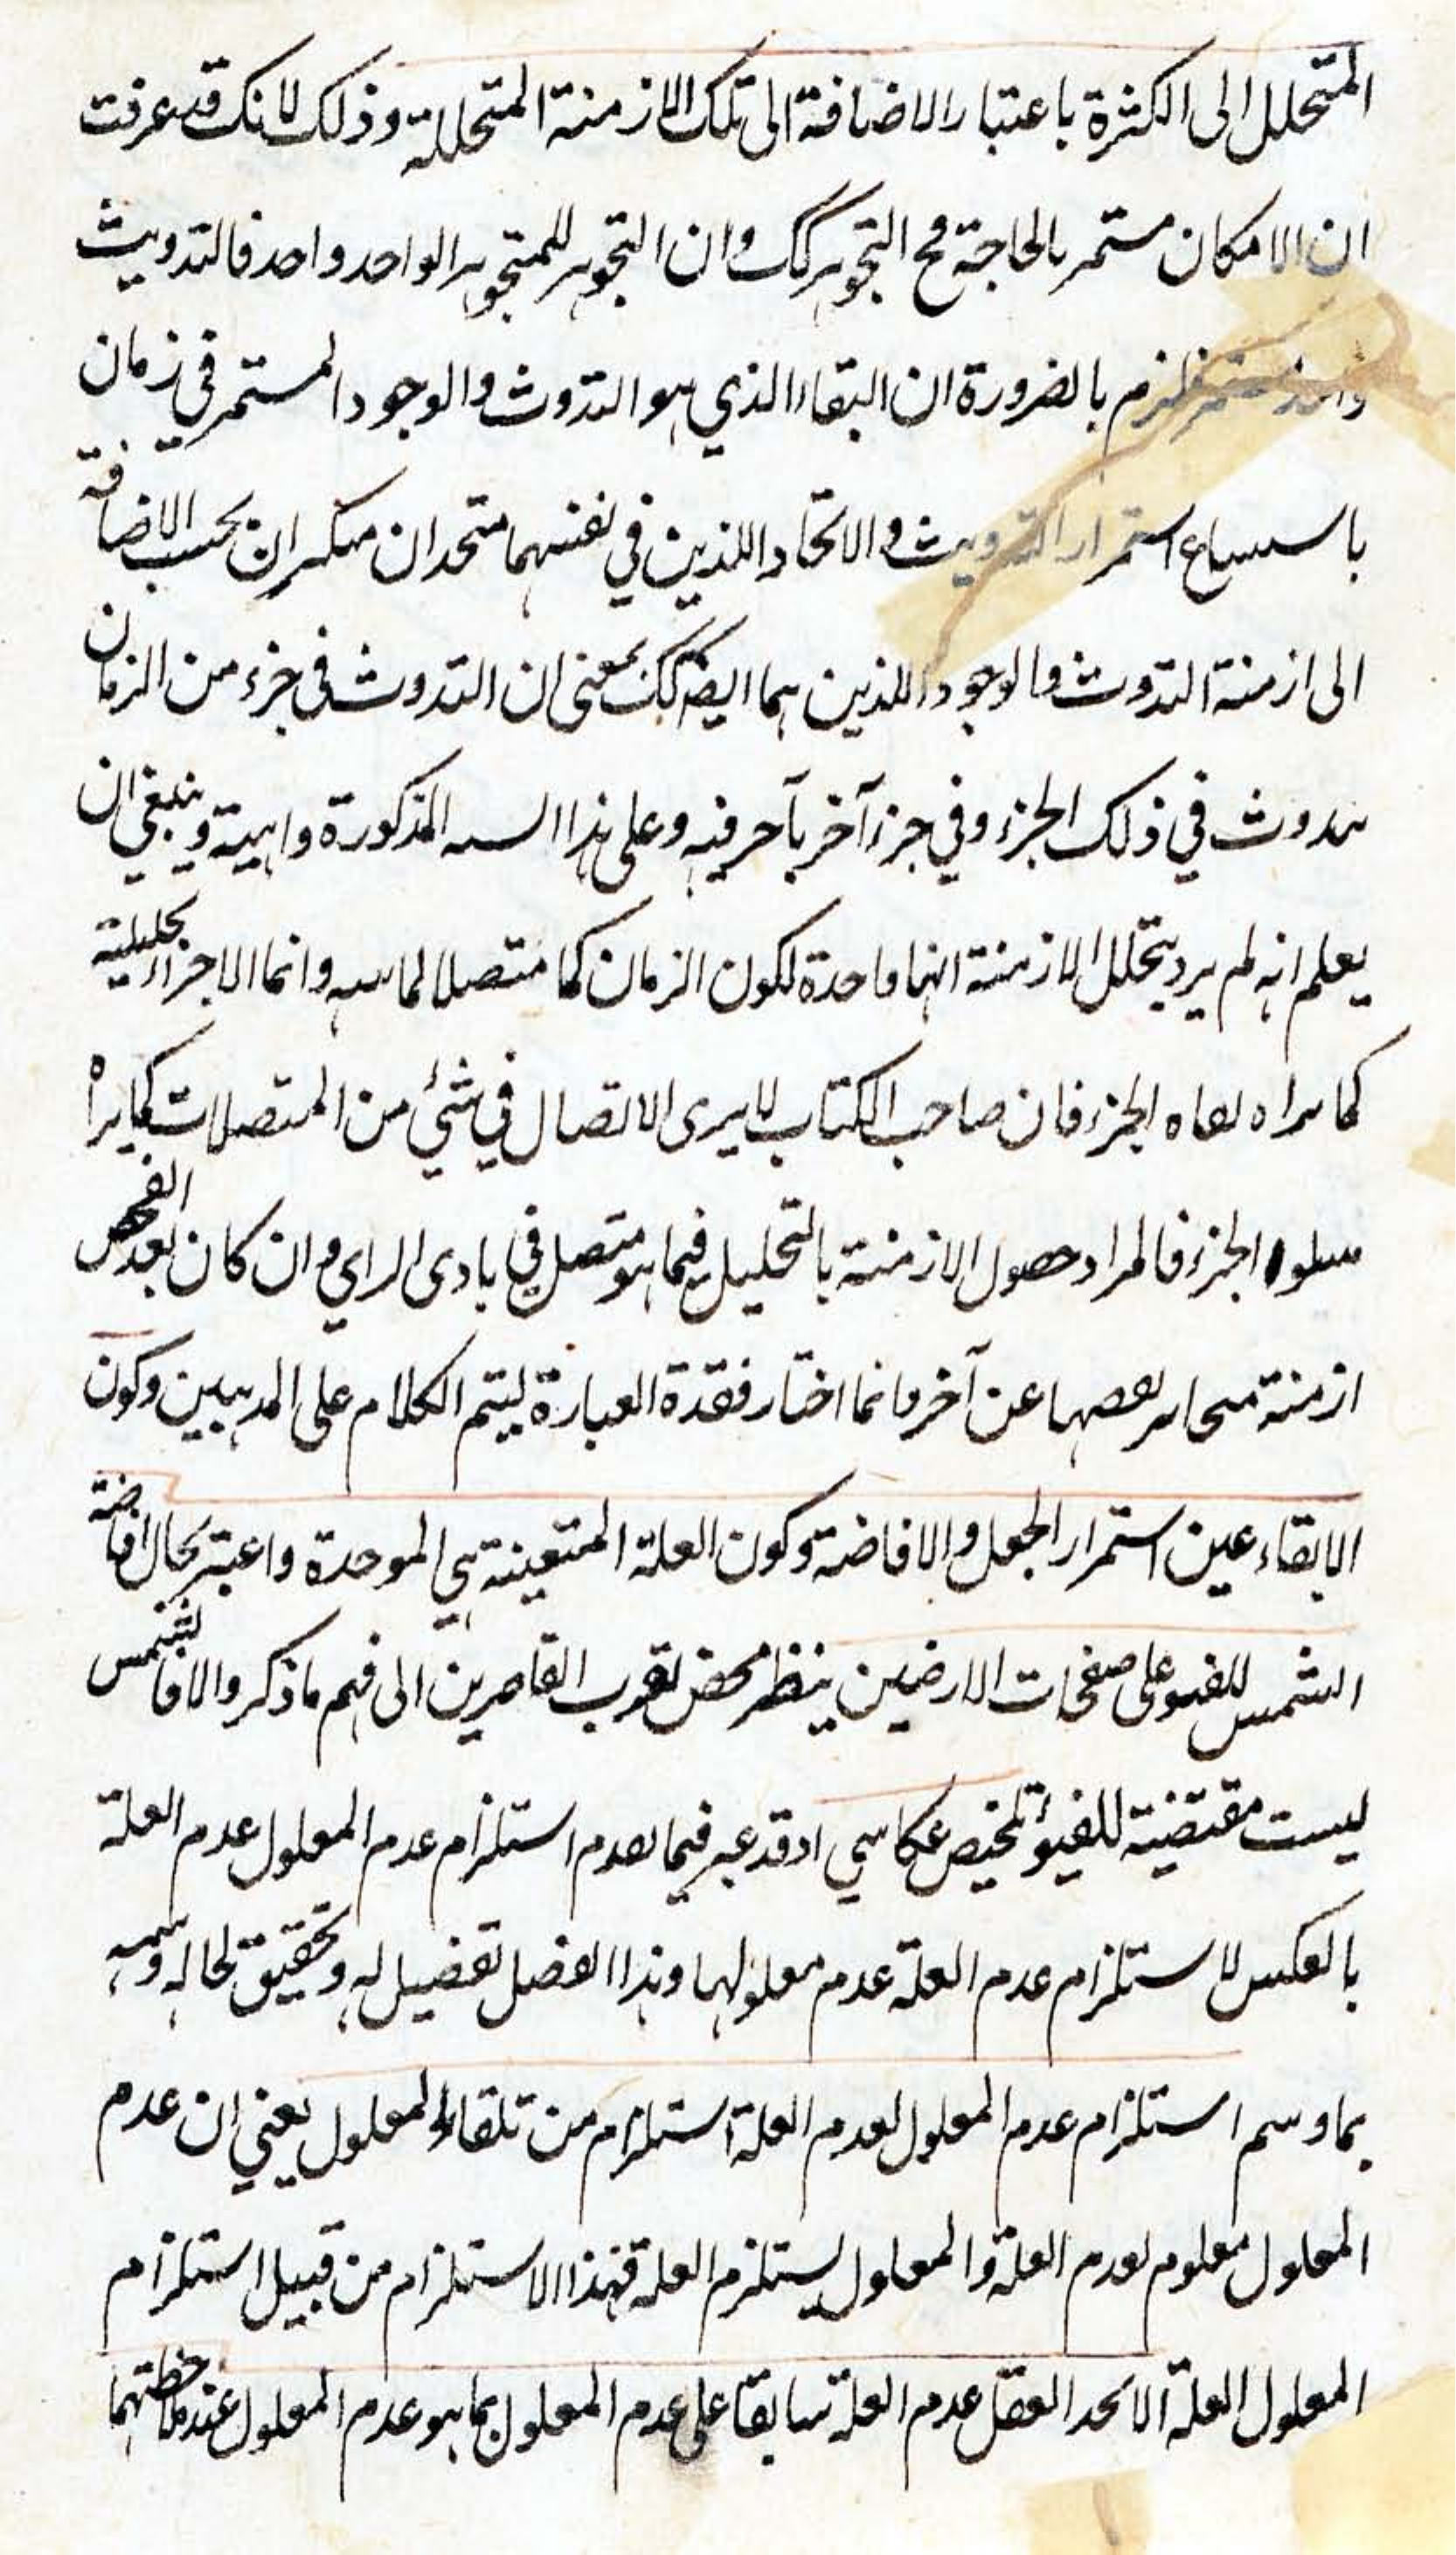 المتحلل الى الكثرة باعتبار الاضافة الى تلك الازمنة المتحللة وذلك لانك قد عرفت
ان الامكان مستمر بالحاجة مع التجوهر كك وان التجوهر للمتجوهر الواحد واحد فالتدويث
مستمر فلزم بالضرورة ان البقاء الذي هو التدوث والوجود المستمر في زمان
استمرار التدويث والاتحاد اللذين في نفسهما متحدان متكثران بحسب الاضافة
الى ازمنة التدوث والوجود اللذين هما ايضا كك بمعنى ان التدوث في جزء من الزمان
في ذلك الجزء وفي جزء آخر بآخر فيه وعلى هذا المذكورة واهية وينبغي ان
يعلم انه لم يرد بتحلل الازمنة انها واحدة لكون الزمان كما متصلا وانما الاجزاء تحليلية
كما الجزء فان صاحب الكتاب لا يرى الاتصال في شئ من المتصلات كما يراه
الجزء فالمراد حصول الازمنة بالتحليل فيما هو متصل في بادى الراي وان كان بعد الفحص
ازمنة بعضها عن آخر وانما اختار فقدة العبارة ليتم الكلام على المذهبين وكون
الابقاء عين استمرار الجعل والافاضة وكون العلة المتعينة هي الموحدة واعتبر بحال افاضة
الشمس للضوء على صفحات الارضين ينظر محض تقرب القاصرين الى فهم ما ذكر والا فالشمس
ليست مقتضية للفيؤ تلخيص عكاسي اذ قد عبر فيما تقدم استلزام عدم المعلول عدم العلة
بالعكس لاستلزام عدم العلة عدم معلولها وهذا الفصل تفصيل له وتحقيق لحاله
بما وسم استلزام عدم المعلول لعدم العلة استلزام من تلقاء المعلول يعني ان عدم
المعلول معلوم لعدم العلة والمعلول يستلزم العلة فهذا الاستلزام من قبيل استلزام
المعلول العلة العقل عدم العلة سابقا على عدم المعلول بما هو عدم المعلول عند ملاحظتهما